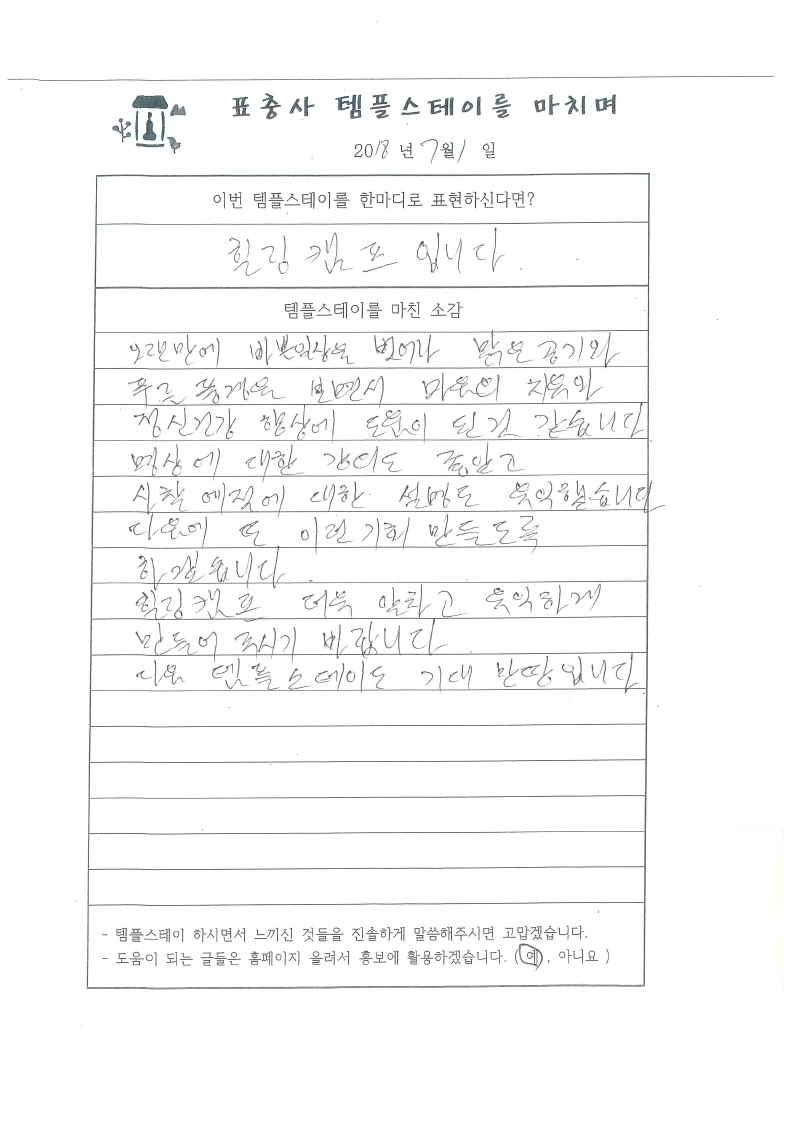 표충사 템플스테이를 마치며
2018년 7월 1일
이번 템플스테이를 한마디로 표현하신다면?
힐링 캠프 입니다.
템플스테이를 마친 소감
오랜만에 바쁜일상을 벗어나 맑은 공기와
푸른 풍경을 보면서 마음의 치유와
정신건강 향상에 도움이 된 것 같습니다
명상에 대한 강의도 좋았고
사찰 예절에 대한 설명도 유익했습니다
다음에 또 이런기회 만들도록
하겠습니다.
힐링캠프 더욱 알차고 유익하게
만들어 주시기 바랍니다.
다음 템플스테이도 기대 만땅입니다
- 템플스테이 하시면서 느끼신 것들을 진솔하게 말씀해주시면 고맙겠습니다.
- 도움이 되는 글들은 홈페이지 올려서 홍보에 활용하겠습니다. (예, 아니요)